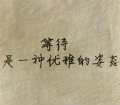 等待
是一种优雅的姿态